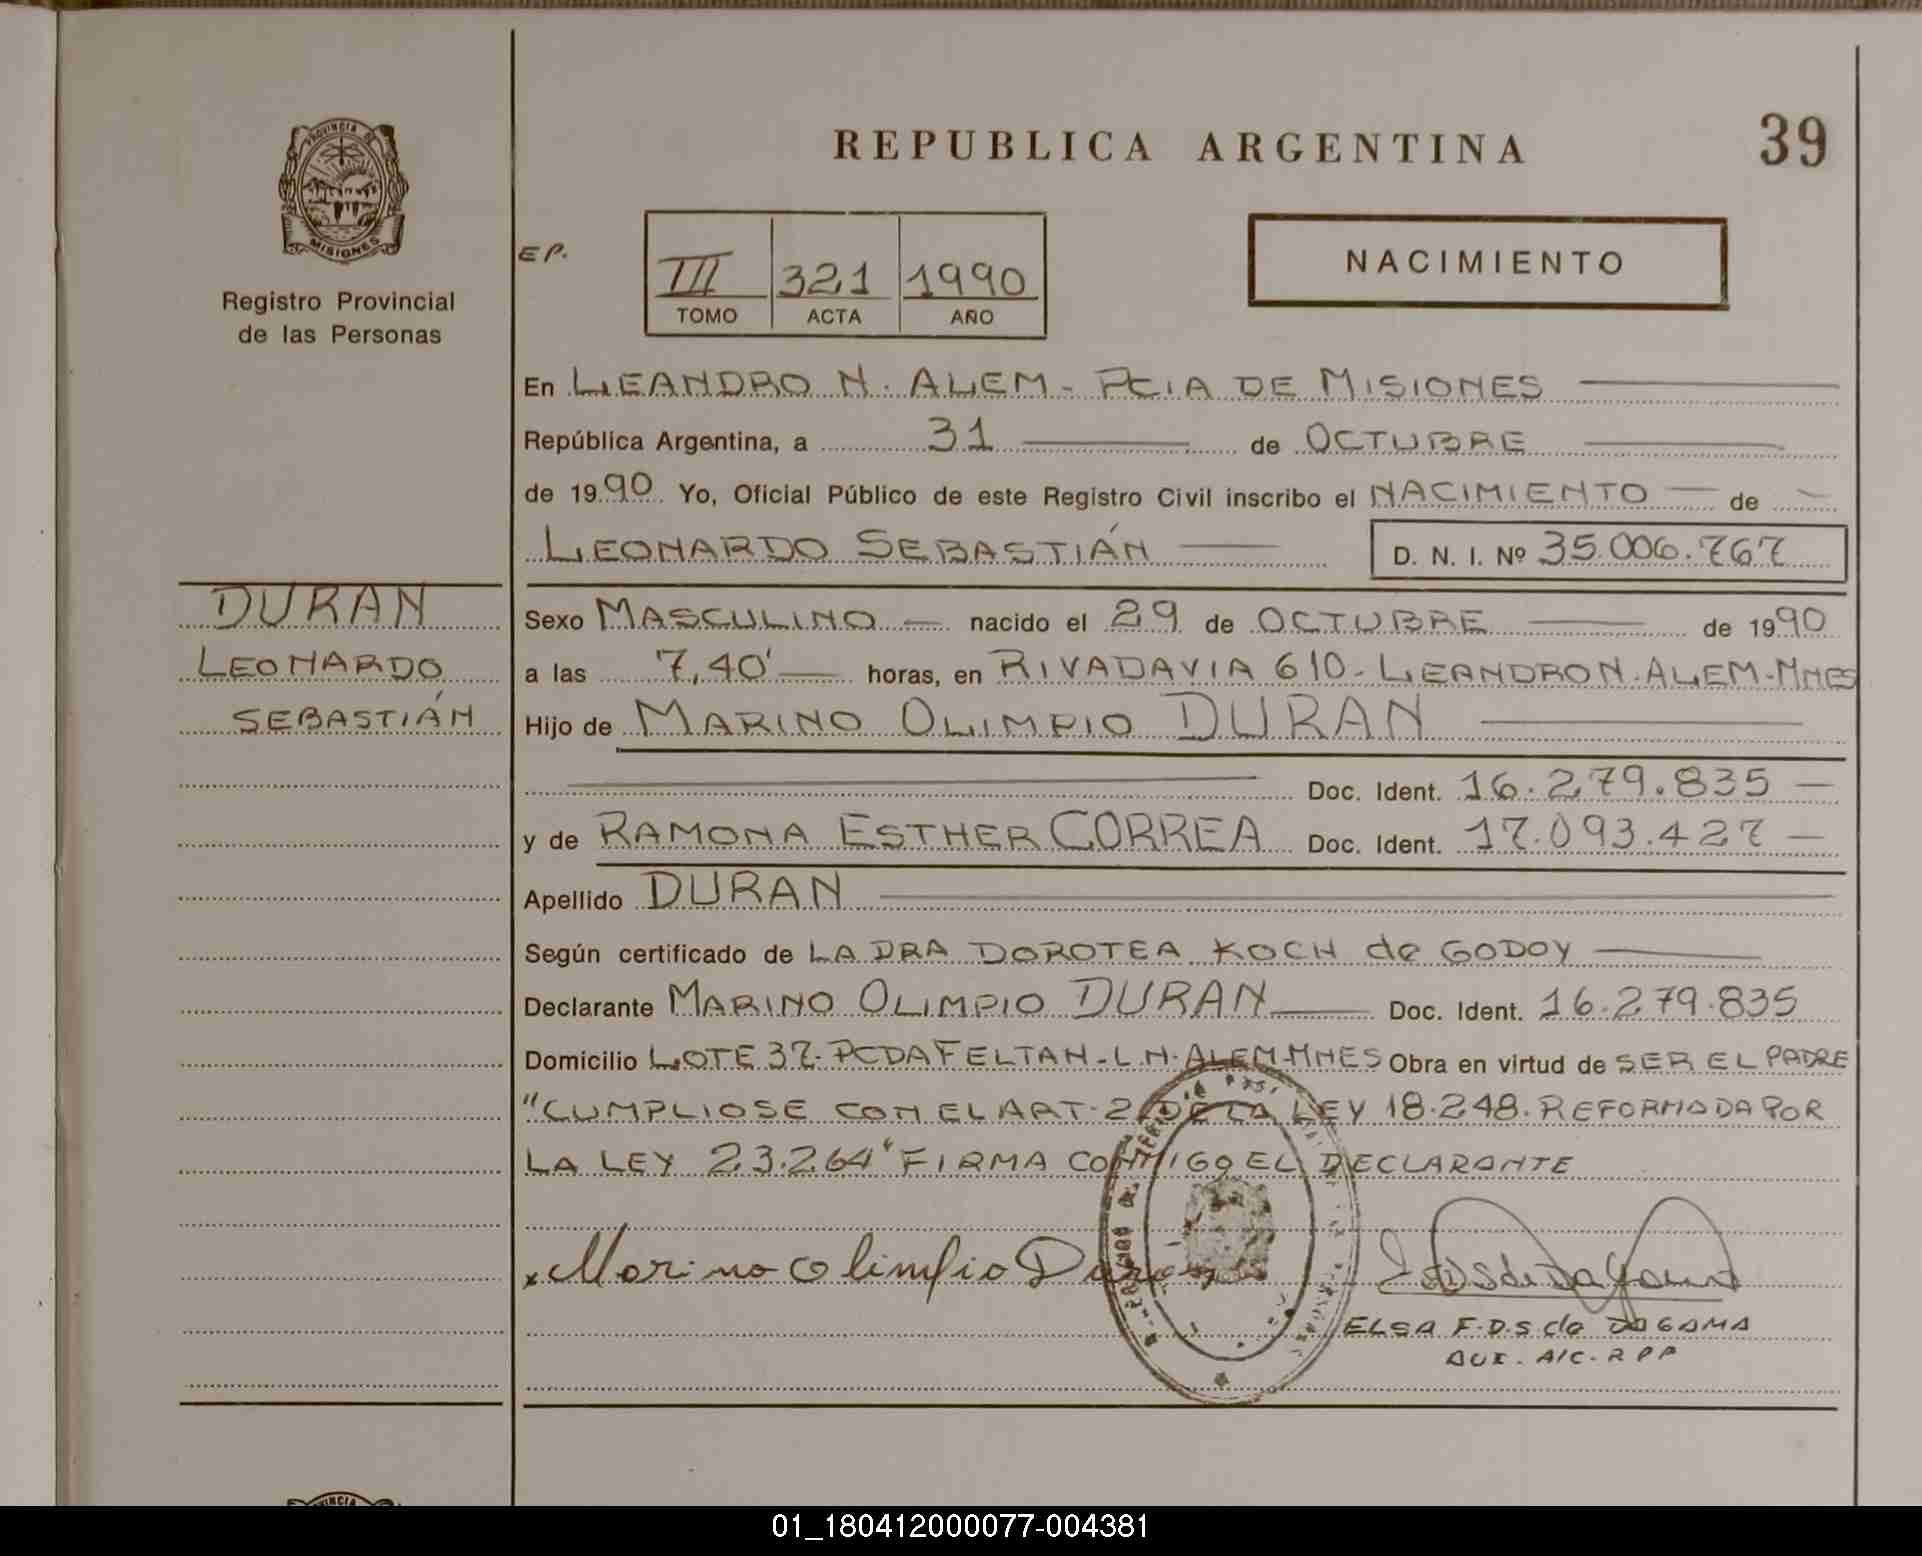 39
REPUBLICA ARGENTINA
PROVINCIA DE
MISIONES
Registro Provincial
de las Personas
EP.
III 321 1990
TOMO ACTA AÑO
NACIMIENTO
En LEANDRO N. ALEM - PCIA DE MISIONES
República Argentina, a 31 de OCTUBRE
de 1990 Yo, Oficial Público de este Registro Civil inscribo el NACIMIENTO de
LEONARDO SEBASTIÁN D. N. I. Nº 35.006.767
DURAN
LEONARDO
SEBASTIÁN
Sexo MASCULINO nacido el 29 de OCTUBRE de 1990
a las 7,40' horas, en RIVADAVIA 610 - LEANDRO N. ALEM - MNES
Hijo de MARINO OLIMPIO DURAN
Doc. Ident. 16.279.835
y de RAMONA ESTHER CORREA Doc. Ident. 17.093.427
Apellido DURAN
Según certificado de LA DRA DOROTEA KOCH de GODOY
Declarante MARINO OLIMPIO DURAN Doc. Ident. 16.279.835
Domicilio LOTE 37- PCDA FELTAN - L.N. ALEM - MNES Obra en virtud de SER EL PADRE
"CUMPLIOSE CON EL ART. 2 DE LA LEY 18.248. REFORMADA POR
LA LEY 23.264" FIRMA CONMIGO EL DECLARANTE
Marino Olimpio Duran
ELSA F.D.S de DAGAMA
AUX. A/C. R P P
PROVINCIA
01_180412000077-004381